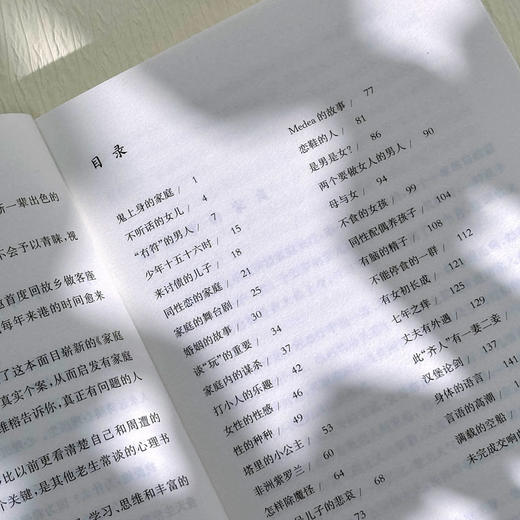 新一辈出色的
不会予以青睐，视
这首度回故乡做客座
每年来港的时间愈来
了这本面目崭新的《家庭
真实个案，从而启发有家庭
维榕告诉你，真正有问题的人
比以前更看清楚自己和周遭的
个关键，是其他老生常谈的心理书
学习、思维和丰富的
目录
鬼上身的家庭 / 1
不听话的女儿 / 4
“有符”的男人 / 7
少年十五十六时 / 15
来讨债的儿子 / 18
同性恋的家庭 / 21
家庭的舞台剧 / 25
婚姻的故事 / 30
谈“玩”的重要 / 34
家庭内的谋杀 / 37
打小人的乐趣 / 42
女性的性感 / 46
性的种种 / 49
塔里的小公主 / 53
非洲紫罗兰 / 60
怎样除魔怪 / 64
儿子的悲哀 / 68
Medea 的故事 / 77
恋鞋的人 / 81
是男是女？ / 86
两个要做女人的男人 / 90
母与女 / 94
不食的女孩 / 99
同性配偶养孩子 / 104
有脑的精子 / 108
不能停食的一群 / 112
有女初长成 / 121
七年之痒 / 125
丈夫有外遇 / 129
此“齐人”有一妻二妾 /
汉堡论剑 / 137
身体的语言 / 141
言语的高潮 /
满载的空船 /
未完成交响